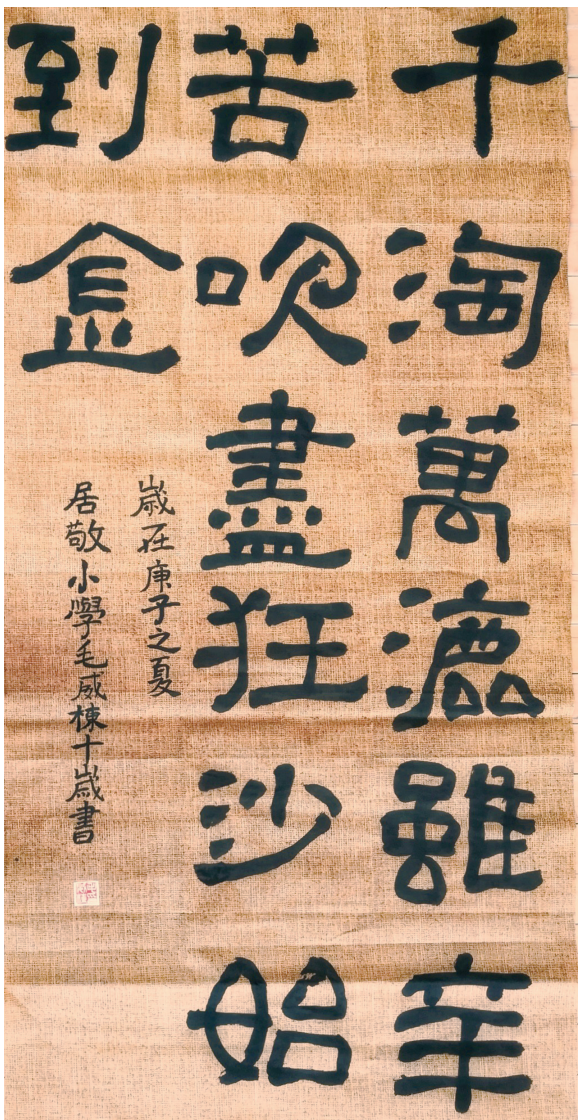 千淘萬漉雖辛
苦吹盡狂沙始
到金
歲在庚子之夏
居敬小學毛威棟十歲書